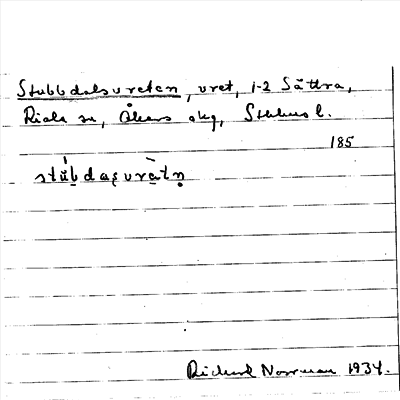 Stubbdalsvreten, vret, 1-2 Sättra,
Riala sn, Åkers skg, Sthlms l.
185
stu̇̀bdaʂvrètn̥
Rickard Norrman 1934.